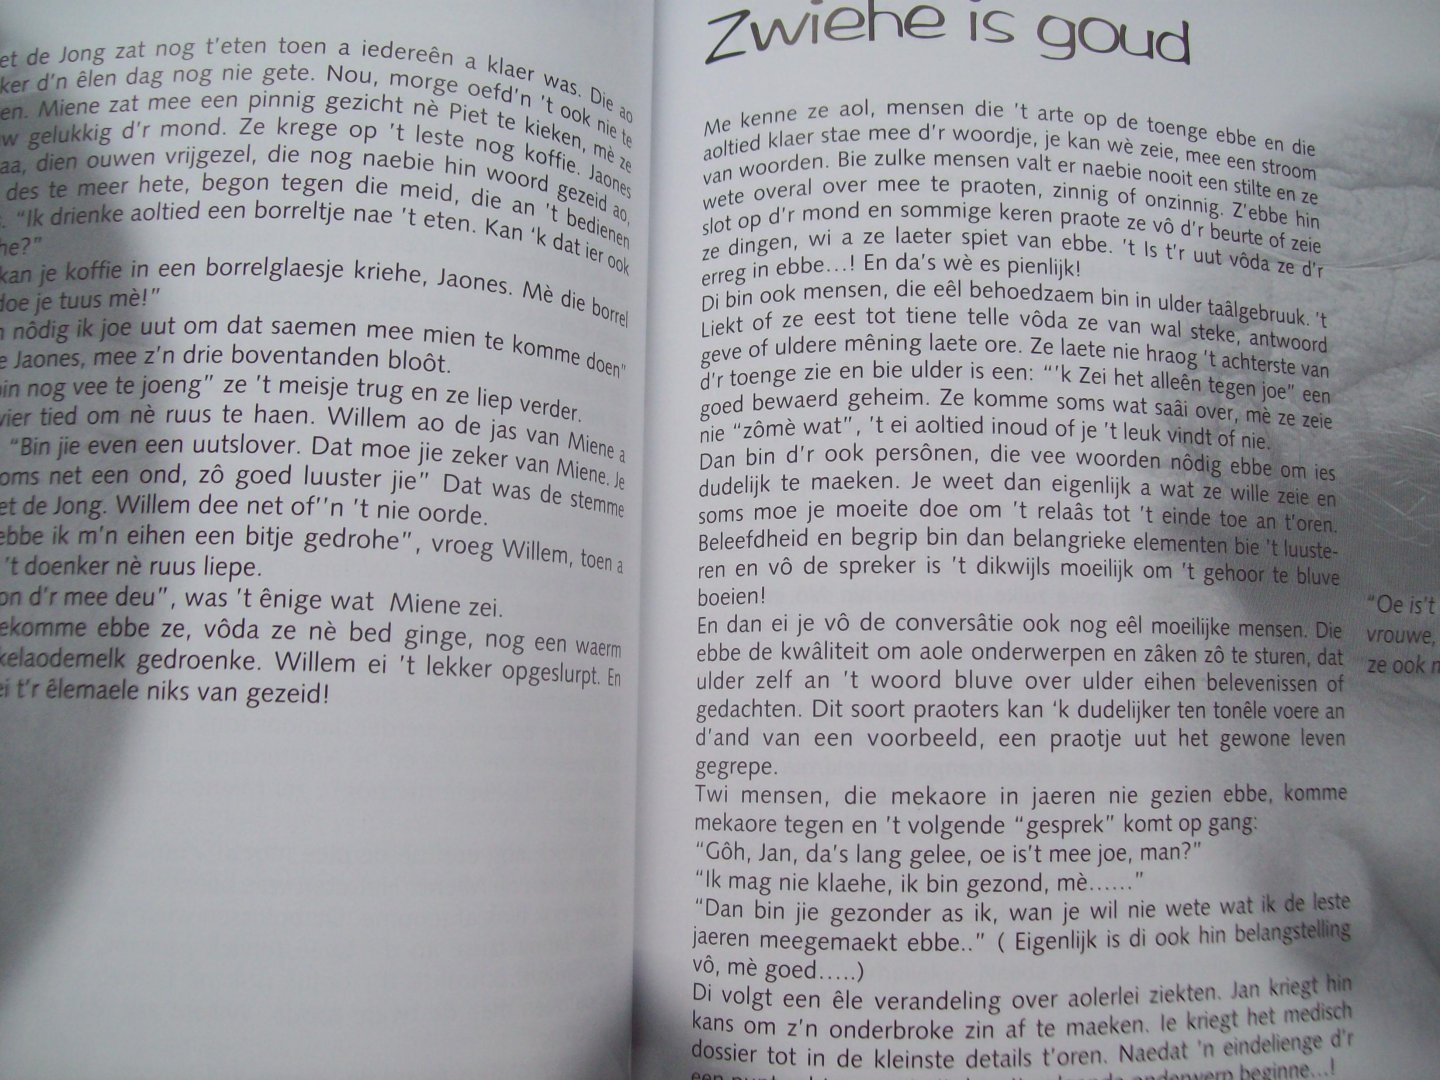 et de Jong zat nog t'eten toen a iedereên a klaer was. Die ao
ker d'n êlen dag nog nie gete. Nou, morge oefd'n 't ook nie te
en. Miene zat mee een pinnig gezicht nè Piet te kieken, mè ze
w gelukkig d'r mond. Ze krege op 't leste nog koffie. Jaones
aa, dien ouwen vrijgezel, die nog naebie hin woord gezeid ao,
des te meer hete, begon tegen die meid, die an 't bedienen
. “Ik drienke aoltied een borreltje nae 't eten. Kan ‘k dat ier ook
he?”
kan je koffie in een borrelglaesje kriehe, Jaones. Mè die borrel
doe je tuus mè!”
nôdig ik joe uut om dat saemen mee mien te komme doen”
e Jaones, mee z'n drie boventanden bloôt.
bin nog vee te joeng” ze 't meisje trug en ze liep verder.
vier tied om nè ruus te haen. Willem ao de jas van Miene a
“Bin jie even een uutslover. Dat moe jie zeker van Miene. Je
oms net een ond, zô goed luuster jie” Dat was de stemme
et de Jong. Willem dee net of''n 't nie oorde.
ebbe ik m'n eihen een bitje gedrohe”, vroeg Willem, toen a
't doenker nè ruus liepe.
on d'r mee deu”, was 't ênige wat Miene zei.
ekomme ebbe ze, vôda ze nè bed ginge, nog een waerm
kelaodemelk gedroenke. Willem ei 't lekker opgeslurpt. En
ei t'r êlemaele niks van gezeid!
Zwiehe is goud
Me kenne ze aol, mensen die 't arte op de toenge ebbe en die
aoltied klaer stae mee d'r woordje, je kan wè zeie, mee een stroom
van woorden. Bie zulke mensen valt er naebie nooit een stilte en ze
wete overal over mee te praoten, zinnig of onzinnig. Z'ebbe hin
slot op d'r mond en sommige keren praote ze vô d'r beurte of zeie
ze dingen, wi a ze laeter spiet van ebbe. 't Is t'r uut vôda ze d'r
erreg in ebbe...! En da's wè es pienlijk!
Di bin ook mensen, die eêl behoedzaem bin in ulder taâlgebruuk. 't
Liekt of ze eest tot tiene telle vôda ze van wal steke, antwoord
geve of uldere mêning laete ore. Ze laete nie hraog 't achterste van
d'r toenge zie en bie ulder is een: “'k Zei het alleên tegen joe” een
goed bewaerd geheim. Ze komme soms wat saâi over, mè ze zeie
nie “zômè wat”, 't ei aoltied inoud of je 't leuk vindt of nie.
Dan bin d'r ook persônen, die vee woorden nôdig ebbe om ies
dudelijk te maeken. Je weet dan eigenlijk a wat ze wille zeie en
soms moe je moeite doe om 't relaâs tot 't einde toe an t'oren.
Beleefdheid en begrip bin dan belangrieke elementen bie 't luuste-
ren en vô de spreker is 't dikwijls moeilijk om 't gehoor te bluve
boeien!
En dan ei je vô de conversâtie ook nog eêl moeilijke mensen. Die
ebbe de kwâliteit om aole onderwerpen en zâken zô te sturen, dat
ulder zelf an 't woord bluve over ulder eihen belevenissen of
gedachten. Dit soort praoters kan ‘k dudelijker ten tonêle voere an
d'and van een voorbeeld, een praotje uut het gewone leven
gegrepe.
Twi mensen, die mekaore in jaeren nie gezien ebbe, komme
mekaore tegen en 't volgende “gesprek” komt op gang:
“Gôh, Jan, da's lang gelee, oe is't mee joe, man?”
“Ik mag nie klaehe, ik bin gezond, mè......”
“Dan bin jie gezonder as ik, wan je wil nie wete wat ik de leste
jaeren meegemaekt ebbe..” ( Eigenlijk is di ook hin belangstelling
vô, mè goed.....)
Di volgt een êle verandeling over aolerlei ziekten. Jan kriegt hin
kans om z'n onderbroke zin af te maeken. Ie kriegt het medisch
dossier tot in de kleinste details t'oren. Naedat 'n eindelienge d'r
een onderwerp beginne...!
“Oe is't
vrouwe,
ze ook